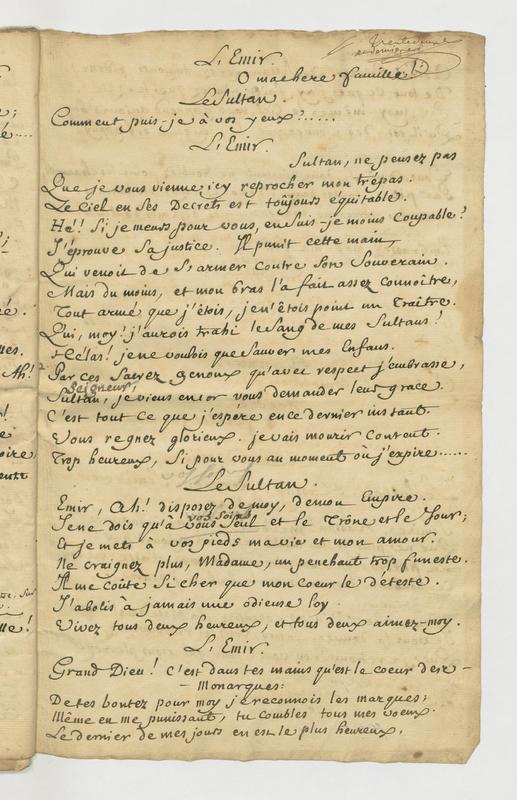 trente deuxe
et derniere
L'Emir.
O ma chere famille!
Le Sultan.
Comment puis-je à vos yeux?......
L'Emir.
Sultan, ne pensez pas
Que je vous vienne icy reprocher mon trépas.
Le Ciel en ses Decrets est toûjours équitable.
He!! Si je meurs pour vous, en suis-je moins Coupable?
J'éprouve sa justice. Il punit cette main,
Qui venoit de s'armer contre son Souverain.
Mais du moins, et mon bras l'a fait assez connoître,
Tout armé que j'étois, je n'étois point un Traître.
Qui, moy! j'aurois trahi le sang de mes Sultans!
Hélas! je ne voulois que sauver mes Enfans.
Par ces sacrez genoux qu'avec respect j'embrasse,
Seigneur,
Sultan, je viens encor vous demander leur grace.
C'est tout ce que j'espére en ce dernier instant.
Vous regnez glorieux. je vais mourir content.
Trop heureux, Si pour vous au moment où j'expire......
Le Sultan.
Emir, Ah! disposez de moy, de mon Empire.
vos soins
Je ne dois qu'à vous seul et le Trône et le Jour;
Et je mets à vos pieds ma vie et mon amour.
Ne craignez plus, Madame, un penchant trop funeste.
Il me coûte si cher que mon coeur le déteste.
J'abolis à jamais une odieuse loy.
Vivez tous deux heureux, et tous deux aimez-moy.
L'Emir.
Grand Dieu! C'est dans tes mains qu'est le coeur des
Monarques:
De tes bontez pour moy je reconnois les marques;
Même en me punissant, tu combles tous mes voeux.
Le dernier de mes jours en est le plus heureux.